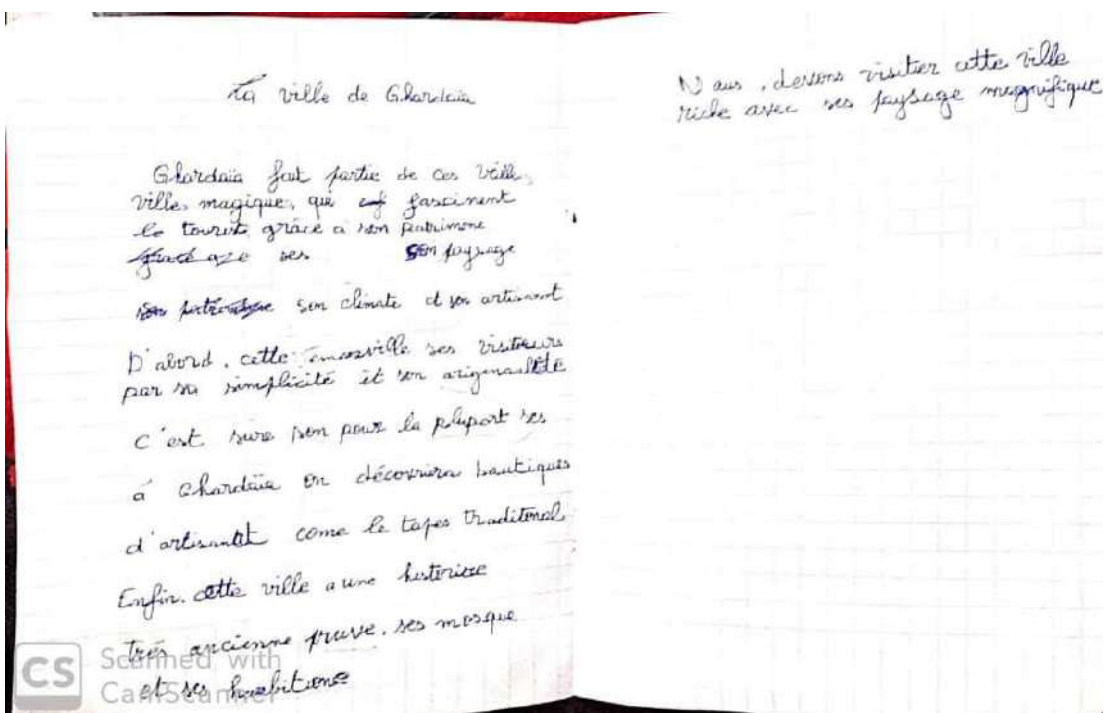 La ville de Ghardaia
Ghardaia fait partie de ces ville,
villes magique, qui fascinent
le touriste grâce à son patrimone
ses son paysage
son climate et son artisanat
D'abord, cette émerville ses visiteurs
par sa simplicité et son originalité
C'est sure pour la plupart ses
à Ghardaïa on découvrira bautiques
d'artisantit come le tapes traditonal
Enfin, cette ville a une historire
très ancienne pruve. ses mosque
et ses habitions
Naus, devons visitier cette ville
riche avec ses paysage magnifique
CS Scanned with
CamScanner